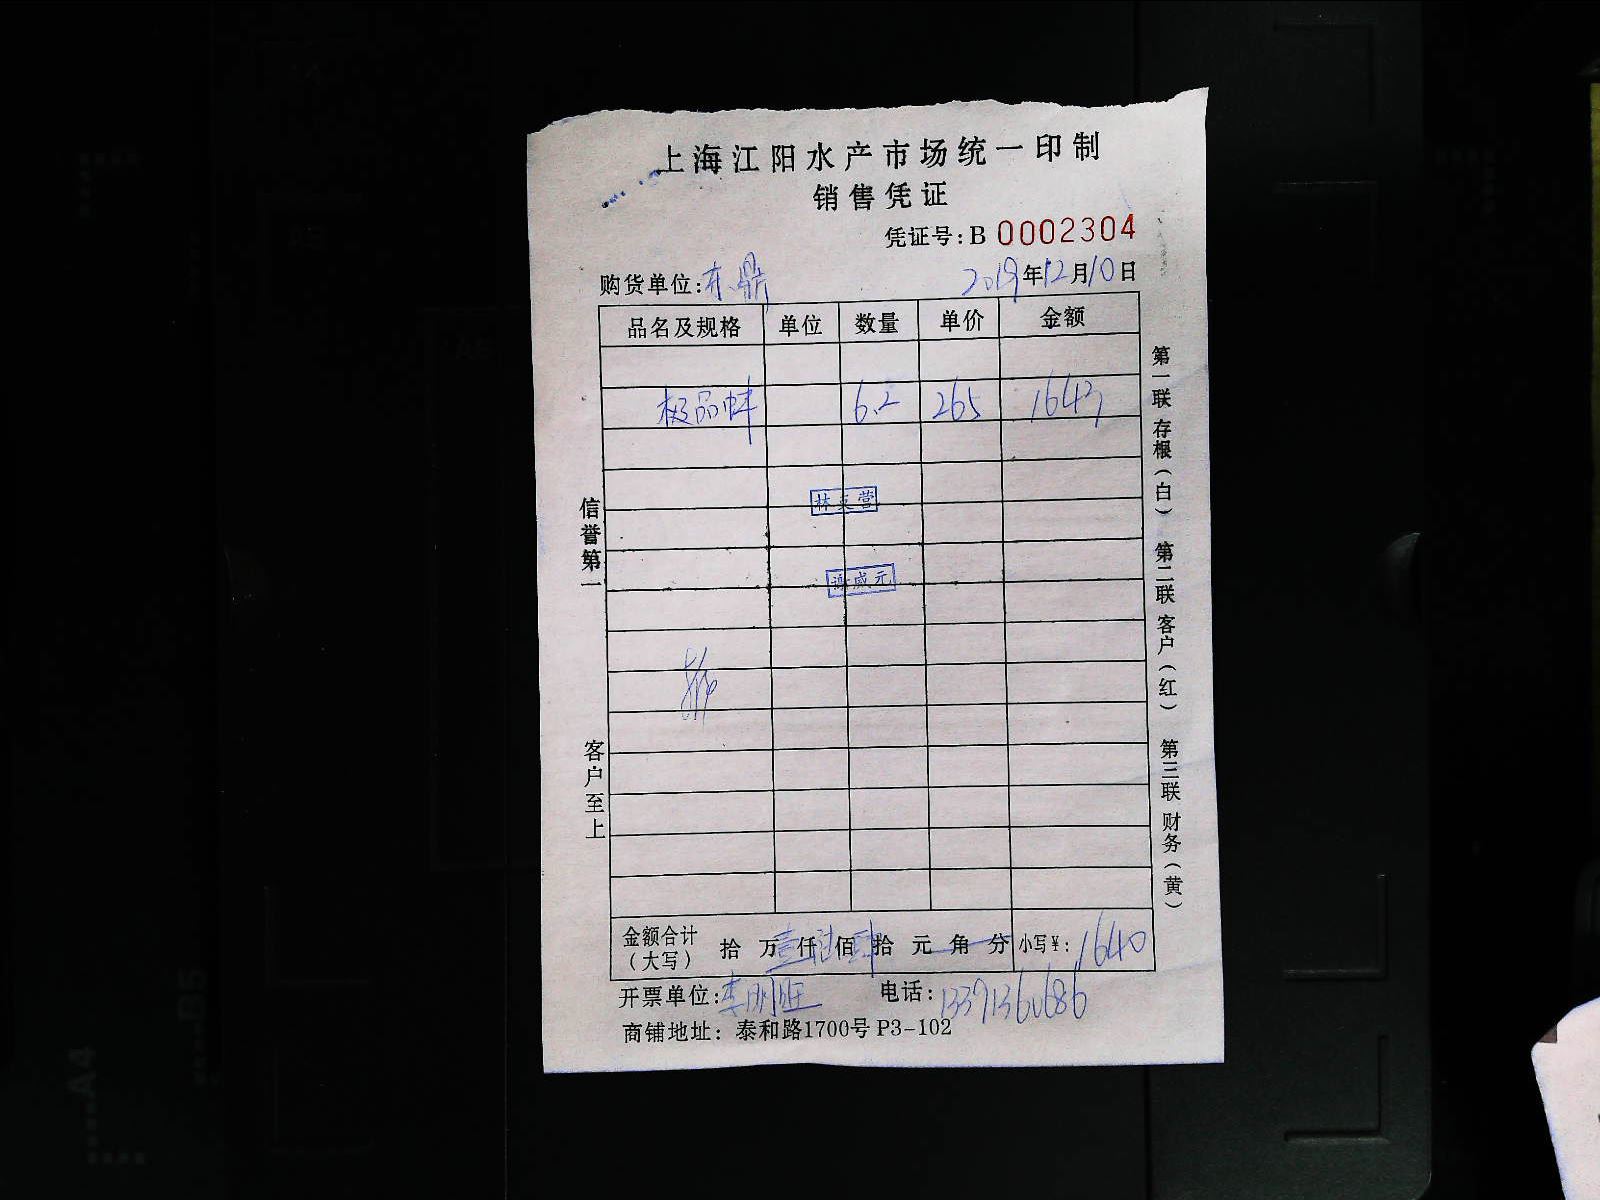 上海江阳水产市场统一印制
销售凭证
凭证号:B 0002304
购货单位:东鼎 2019年12月10日
品名及规格 单位 数量 单价 金额
极品蚌 6.2 265 1643
林英营
谢盛元
信誉第一
客户至上
第一联存根(白) 第二联客户(红) 第三联财务(黄)
金额合计(大写) 拾 万壹仟陆佰肆拾 元 角 分 小写¥:1640
开票单位:李明旺 电话:13371360686
商铺地址: 泰和路1700号 P3-102